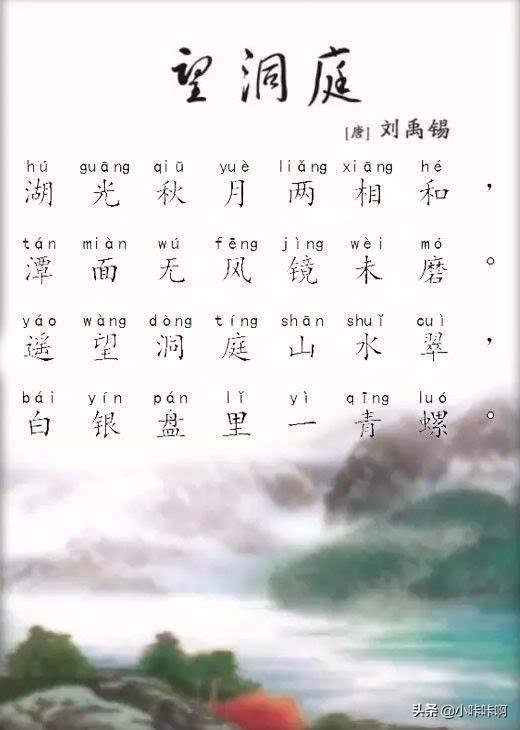 望洞庭
[唐] 刘禹锡
hú guāng qiū yuè liǎng xiāng hé
湖光秋月两相和，
tán miàn wú fēng jìng wèi mó
潭面无风镜未磨。
yáo wàng dòng tíng shān shuǐ cuì
遥望洞庭山水翠，
bái yín pán lǐ yì qīng luó
白银盘里一青螺。
头条 @小咔咔啊